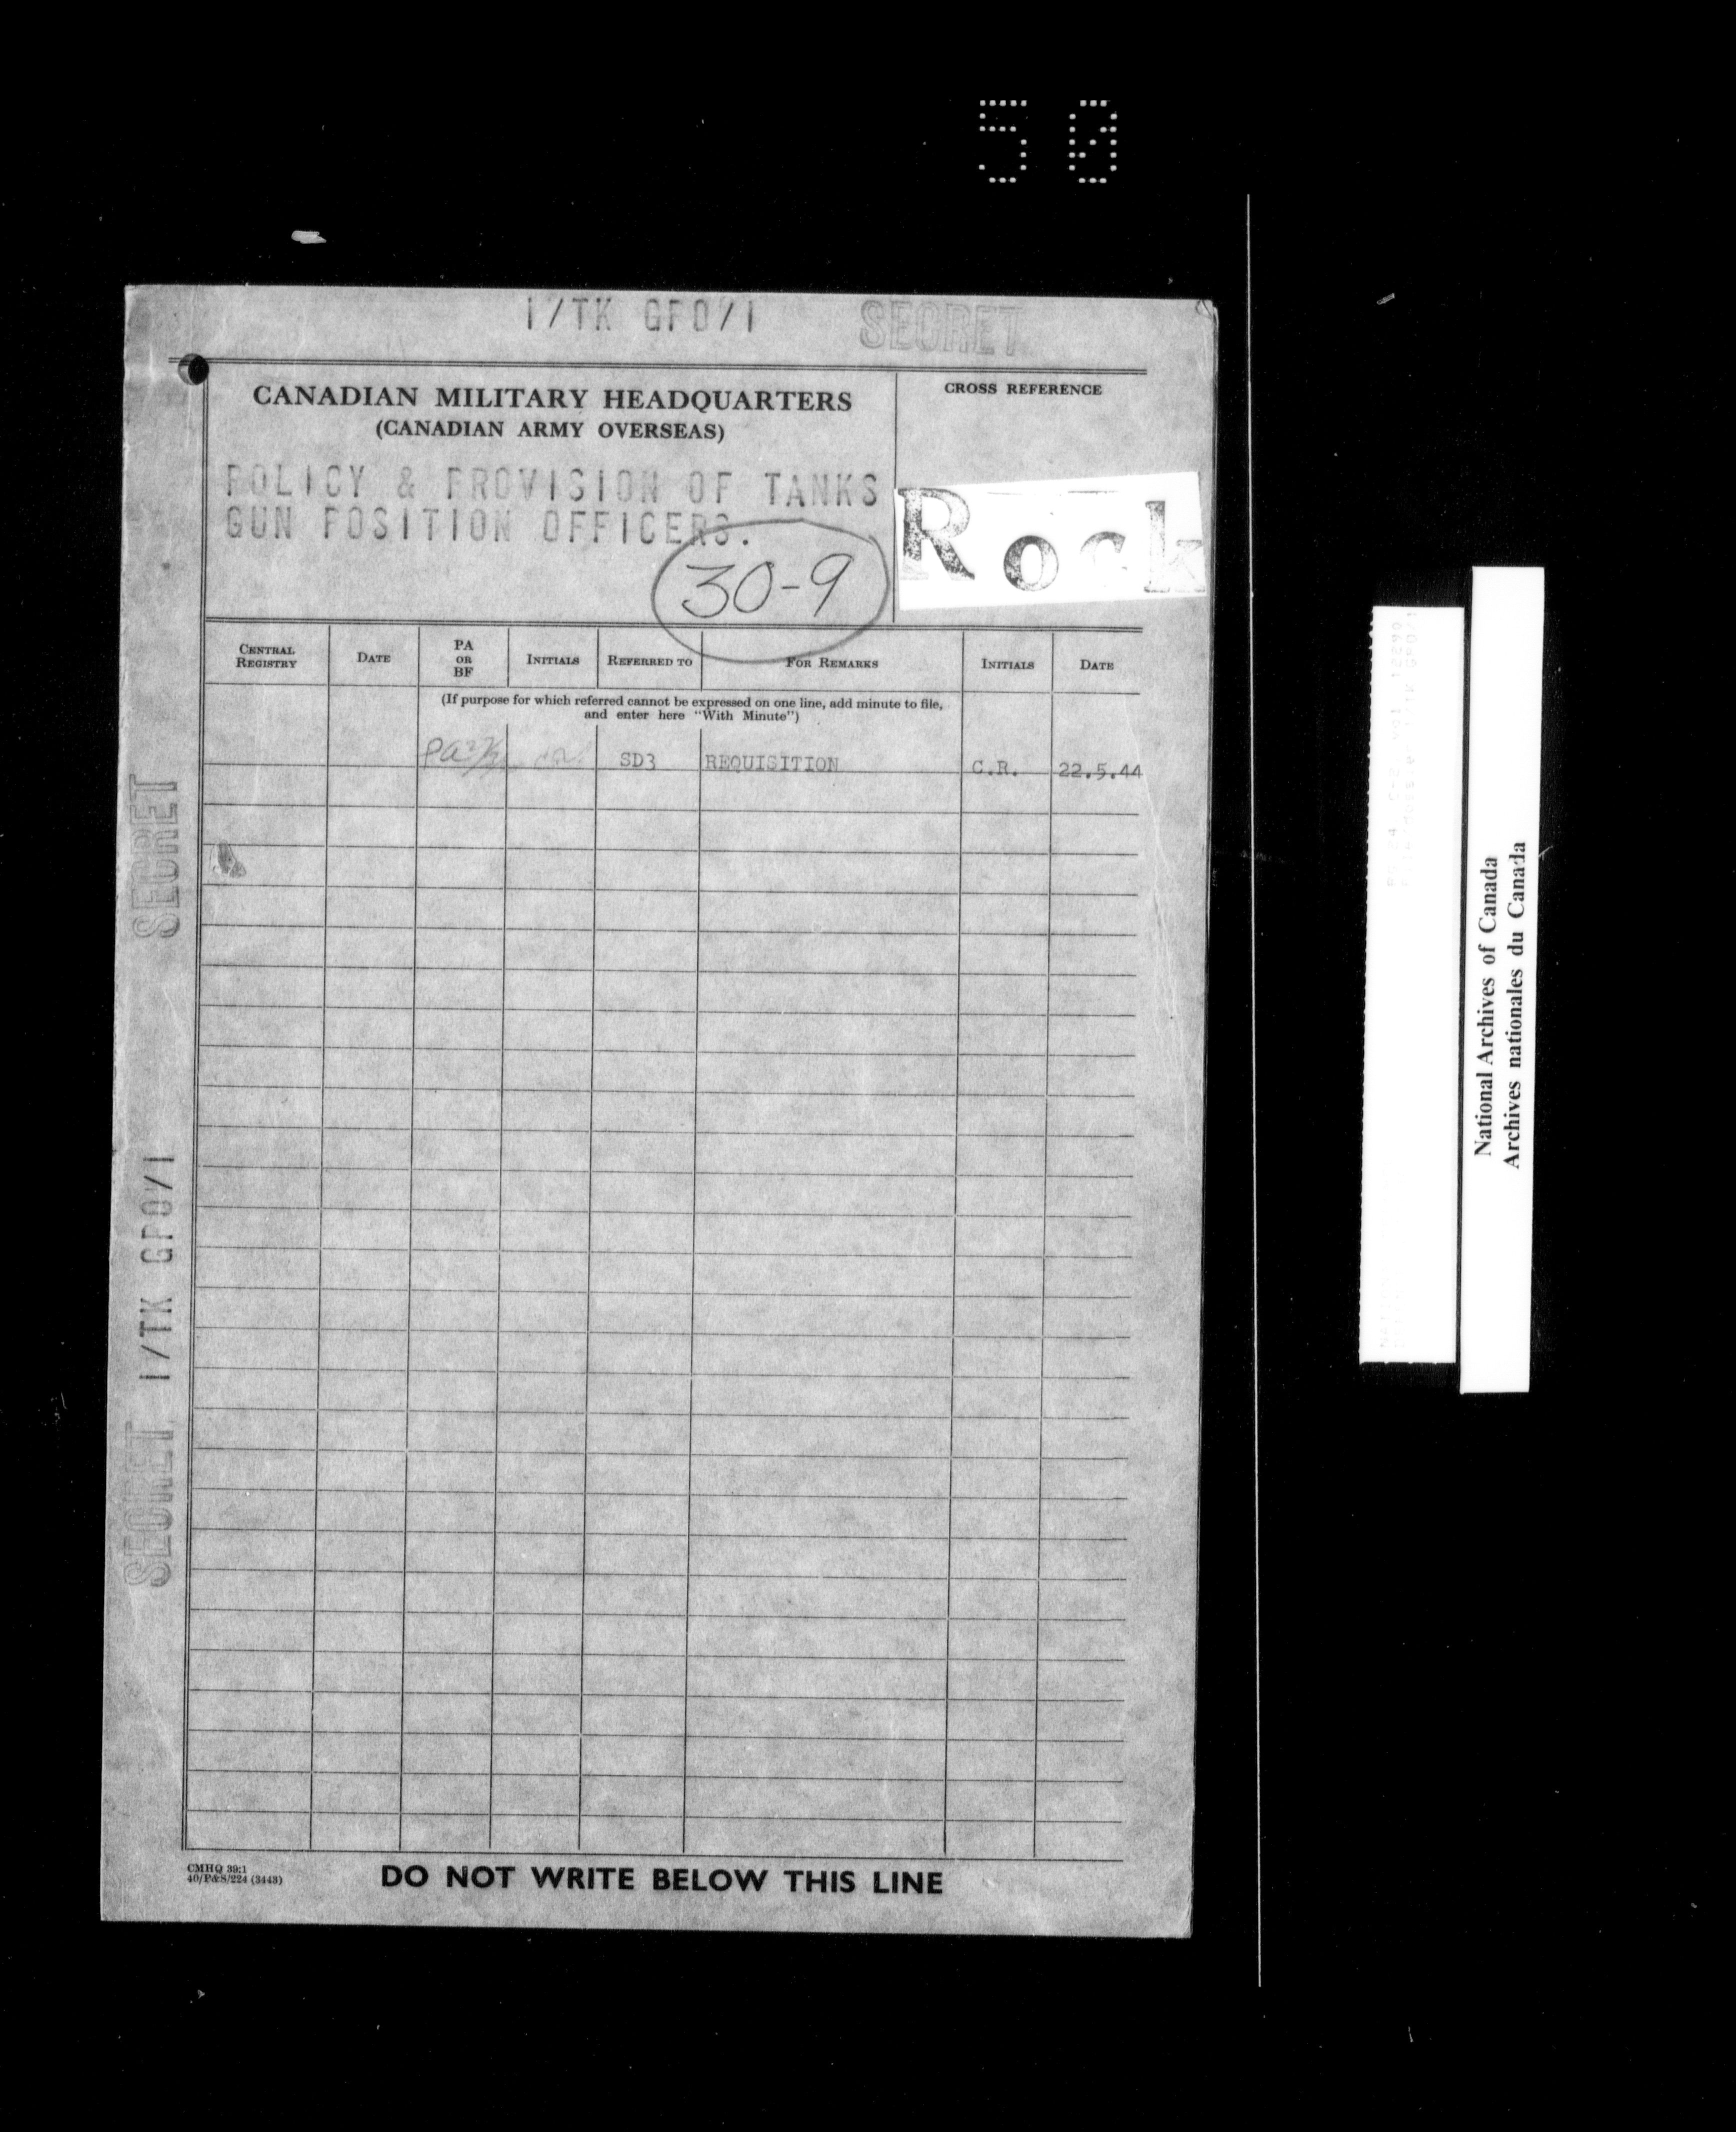 50
1/TK GPO/1 SECRET
CANADIAN MILITARY HEADQUARTERS
(CANADIAN ARMY OVERSEAS)
CROSS REFERENCE
POLICY & PROVISION OF TANKS
GUN POSITION OFFICERS.
30-9
Rock
CENTRAL REGISTRY DATE PA OR BF INITIALS REFERRED TO FOR REMARKS INITIALS DATE
(If purpose for which referred cannot be expressed on one line, add minute to file,
and enter here "With Minute")
SD3 REQUISITION C.R. 22.5.44
SECRET 1/TK GPO/1 SECRET
CMHQ 39:1
40/P&S/224 (3443)
DO NOT WRITE BELOW THIS LINE
National Archives of Canada
Archives nationales du Canada